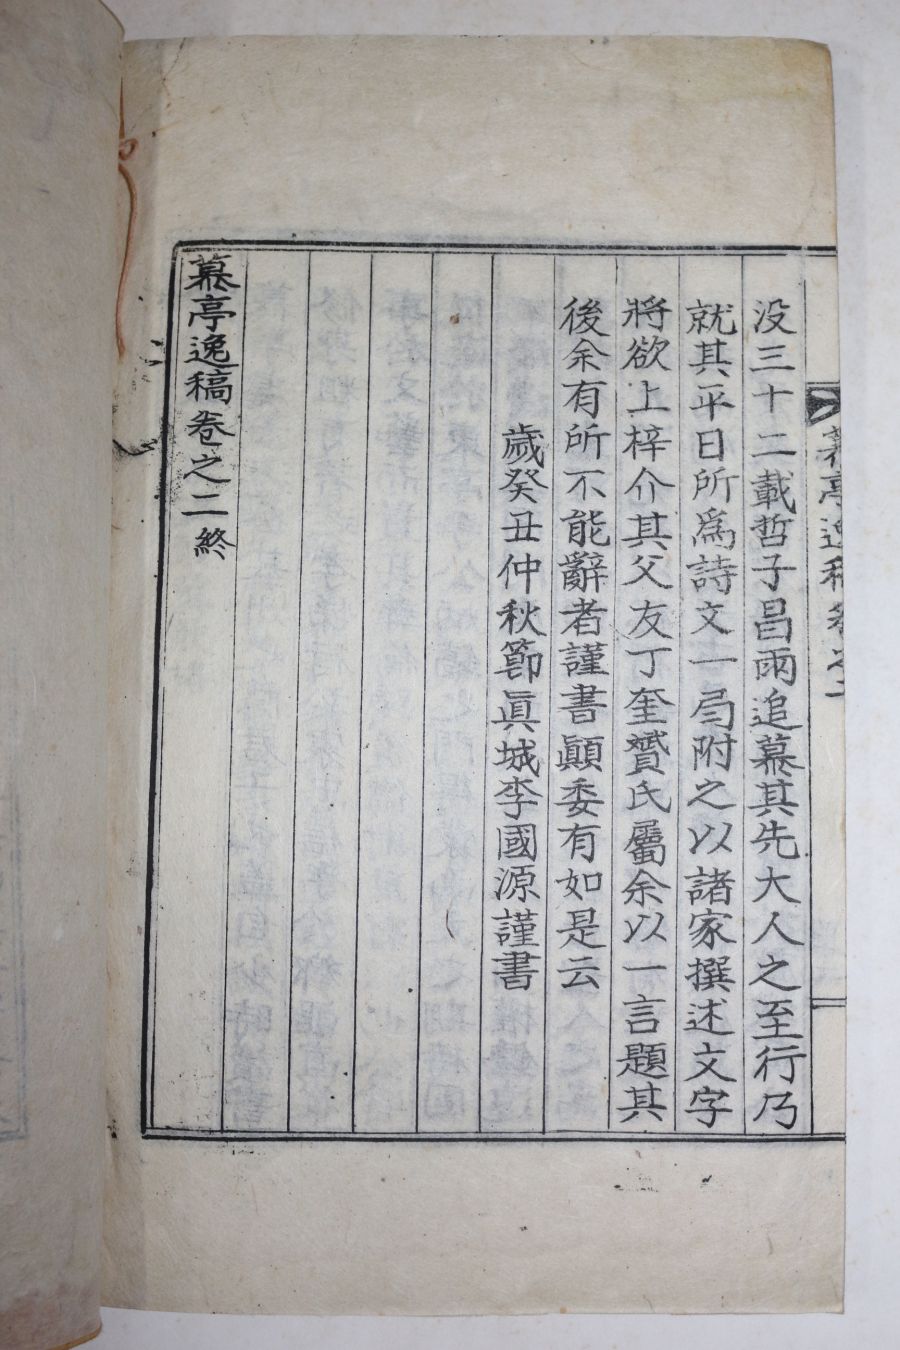 没三十二載哲子昌雨追慕其先大人之至行乃
就其平日所爲詩文一局附之以諸家撰述文字
將欲上梓介其父友丁奎贇氏屬余以一言題其
後余有所不能辭者謹書顚委有如是云
歲癸丑仲秋節眞城李國源謹書
慕亭逸稿卷之二終
慕亭逸稿卷之二